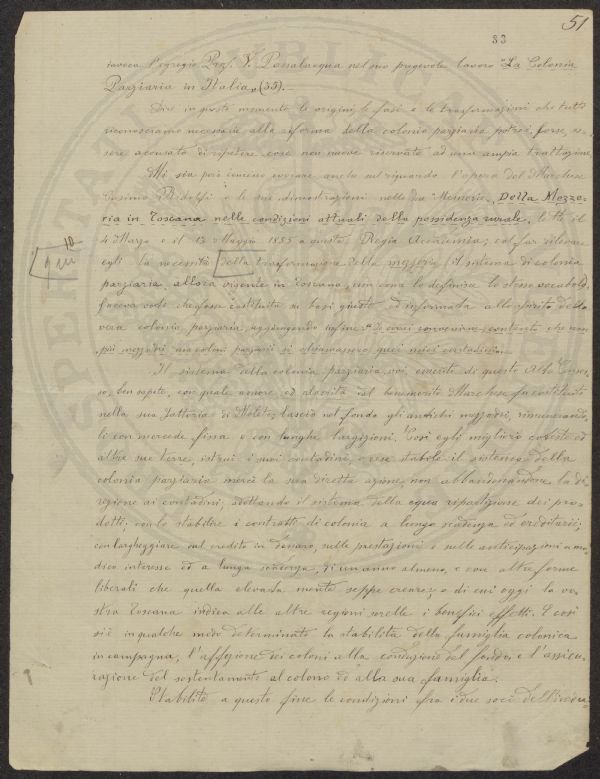 51
33
invoca l'egregio Prof. V. Passalacqua nel suo pregevole lavoro "La Colonia
Parziaria in Italia„ (35).
Dire in questo momento le origini, le fasi e le trasformazioni che tutti
riconosciamo necessarie alla riforma della colonia parziaria potrei, forse, es-
sere accusato di ripetere cose non nuove riservate ad una ampia trattazione.
Mi sia però concesso evocare anche sul riguardo l'opera del Marchese
Cosimo Ridolfi e le sue dimostrazioni nelle due Memorie, Della Mezze-
ria in Toscana nelle condizioni attuali della possidenza rurale, lette il
4 Marzo e il 13 Maggio 1855 a questa Regia Accademia; col far rilevare
egli la necessità della trasformazione della mezzeria, il sistema di colonia
parziaria, allora vigente in Toscana, non come lo definisce lo stesso vocabolo,
faceva voto che fosse costituita su basi giuste ed informata allo spirito della
vera colonia parziaria, aggiungendo infine: di essere contento che non
più mezzadri ma coloni parziarii si chiamassero quei miei contadini.
Il sistema della colonia parziaria, voi, eminenti di questo Alto Conses-
so, ben sapete, con quale amore ed alacrità dal benemerito Marchese fu costituito
nella sua Fattoria di Meleto; lasciò nel fondo gli antichi mezzadri, rimunerando-
li con mercede fissa e con lunghe largizioni. Così egli migliorò coteste ed
altre sue terre, istruì i suoi contadini, e rese stabile il sistema della
colonia parziaria mercè la sua diretta azione, non abbandonandone la di-
rezione ai contadini; adottando il sistema della equa ripartizione dei pro-
dotti; con lo stabilire i contratti di colonia a lunga scadenza ed ereditarii;
con largheggiare sul credito in denaro, nelle prestazioni e nelle anticipazioni a mo-
dico interesse ed a lunga scadenza, di un anno almeno, e con altre forme
liberali che quella elevata mente seppe creare; e di cui oggi la vo-
stra Toscana indica alle altre regioni sorelle i benefici effetti. E così
si è in qualche modo determinata la stabilità della famiglia colonica
in campagna, l'affezione dei coloni alla conduzione del fondo, e l'assicu-
razione del sostentamento al colono ed alla sua famiglia.
Stabilite a questo fine le condizioni fra i due soci